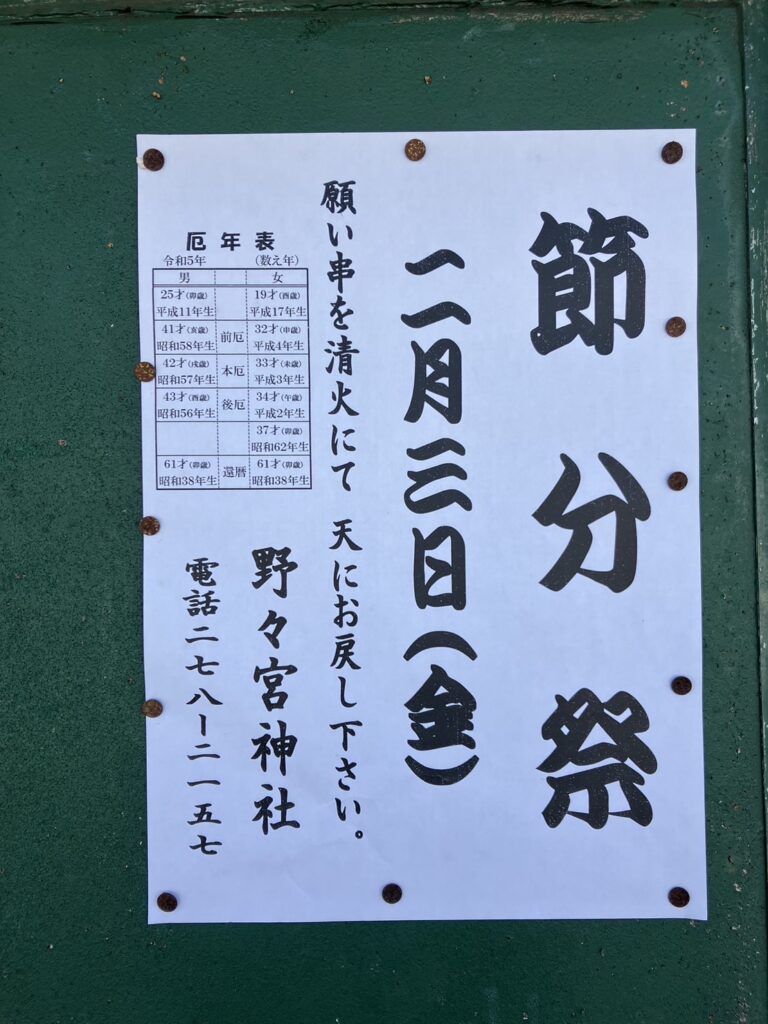 節分祭
二月三日(金)
願い串を清火にて 天にお戻し下さい。
厄年表
令和5年 (数え年)
男 女
25才(卯歳) 19才(酉歳)
平成11年生 平成17年生
41才(亥歳) 前厄 32才(申歳)
昭和58年生 平成4年生
42才(戌歳) 本厄 33才(未歳)
昭和57年生 平成3年生
43才(酉歳) 後厄 34才(午歳)
昭和56年生 平成2年生
37才(卯歳)
昭和62年生
61才(卯歳) 還暦 61才(卯歳)
昭和38年生 昭和38年生
野々宮神社
電話二七八ー二一五七